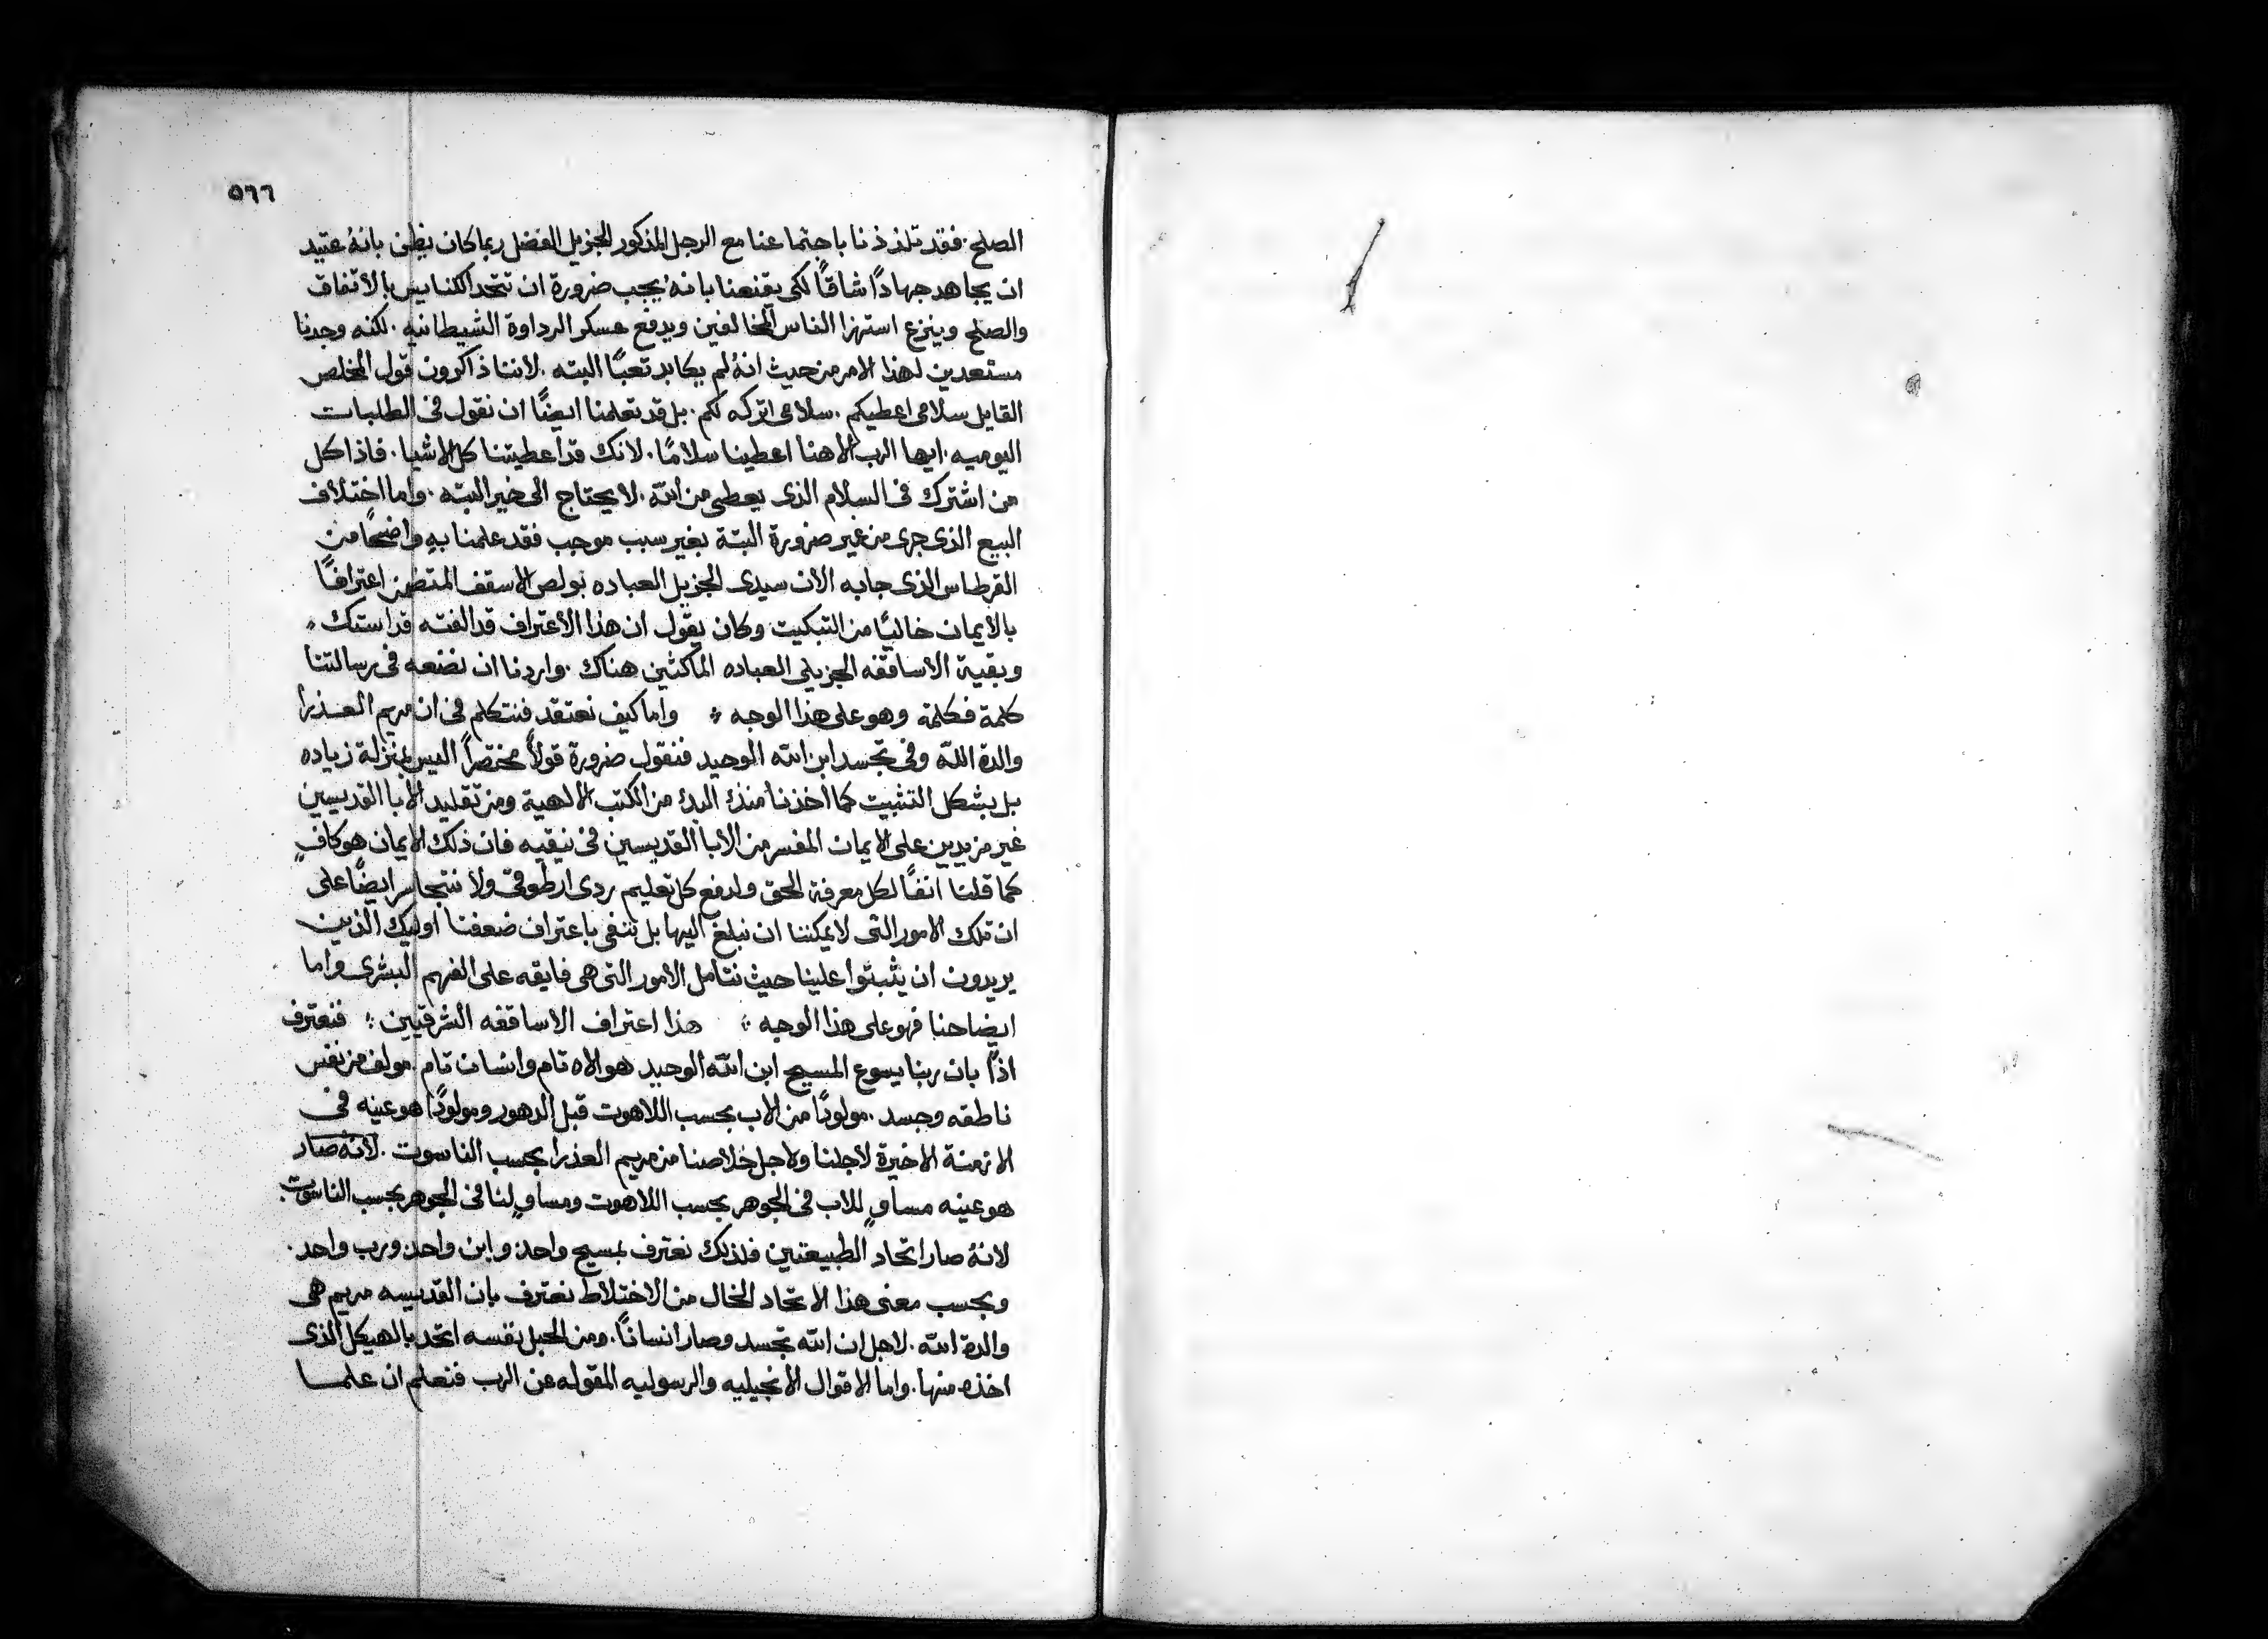 ٥٦٦
الصلح. فقد تلذذنا باجتماعنا مع الرجل المذكور الجزيل الفضل ربما كان يظن بانه عتيد
ان يجاهد جهادًا شاقًا لكى يقنعنا بانه يجب ضرورة ان تتحد الكنايس بالأتفاق
والصلح وينزع استهزا الناس المخالفين ويدفع عسكر الرداوة الشيطانيه. لكنه وجدنا
مستعدين لهذا الامر من حيث انه لم يكابد تعبًا البته. لاننا ذاكرون قول المخلص
القايل سلامى اعطيكم. سلامى اتركه لكم. بل قد تعلمنا ايضًا ان نقول فى الطلبات
اليوميه. ايها الرب الاهنا اعطينا سلامًا. لانك قد اعطيتنا كل الاشيا. فاذا كل
من اشترك فى السلام الذى يعطى من الله. لا يحتاج الى خير البته. واما اختلاف
البيع الذى جرى من غير ضرورة البتة بغير سبب موجب فقد علمنا به واضحًا من
القرطاس الذى جابه الان سيدى الجزيل العباده بولص الاسقف المتضمن اعترافًا
بالأيمان خاليًا من التبكيت وكان يقول ان هذا الأعتراف قد الفته قداستك.
وبقية الاساقفه الجزيلى العباده الماكثين هناك. واردنا ان نضعه فى رسالتنا
كلمة فكلمة وهو على هذا الوجه ܀ واما كيف نعتقد فنتكلم فى ان مريم العذرا
والدة اللّه وفى تجسد ابن الله الوحيد فنقول ضرورة قولاً مختصراً اليس بمنزلة زياده
بل بشكل التثبيت كما اخذنا منذ البدء من الكتب الالهية ومن تقليد الابا القديسين
غير مزيدين على الايمان المفسر من الأبا القديسين فى نيقيه فان ذلك الايمان هو كافٍ
كما قلنا انفًا لكل معرفة الحق ولدفع كل تعليم ردى ارطوقى ولا نتجاسر ايضًا على
ان تلك الامور التى لا يمكننا ان نبلغ اليها بل ننفى باعتراف ضعفنا اوليك الذين
يريدون ان يثبتوا علينا حيث نتامل الأمور التى هى فايقه على الفهم البشرى واما
ايضاحنا فهو على هذا الوجه ܀ هذا اعتراف الاساقفه الشرقيين ܀ فنعترف
اذًا بان ربنا يسوع المسيح ابن الله الوحيد هو الاه تام وانسان تام. مولف من نفس
ناطقه وجسد. مولودًا من الاب بحسب اللاهوت قبل الدهور ومولودًا هو عينه فى
الازمنة الاخيرة لأجلنا ولاجل خلاصنا من مريم العذرا بحسب الناسوت. لأنه صار
هو عينه مساوٍ للاب فى الجوهر بحسب اللاهوت ومساوٍ لنا فى الجوهر بحسب الناسوت.
لانهُ صار اتحاد الطبيعتين فلذلك نعترف بمسيح واحد وابن واحد ورب واحد.
وبحسب معنى هذا الاتحاد الخال من الاختلاط نعترف بان القديسه مريم هى
والدة الله. لاجل ان الله تجسد وصار انسانًا. ومن الحبل نفسه اتحد بالهيكل الذى
اخذه منها. واما الاقوال الانجيليه والرسوليه المقوله عن الرب فنعلم ان علما